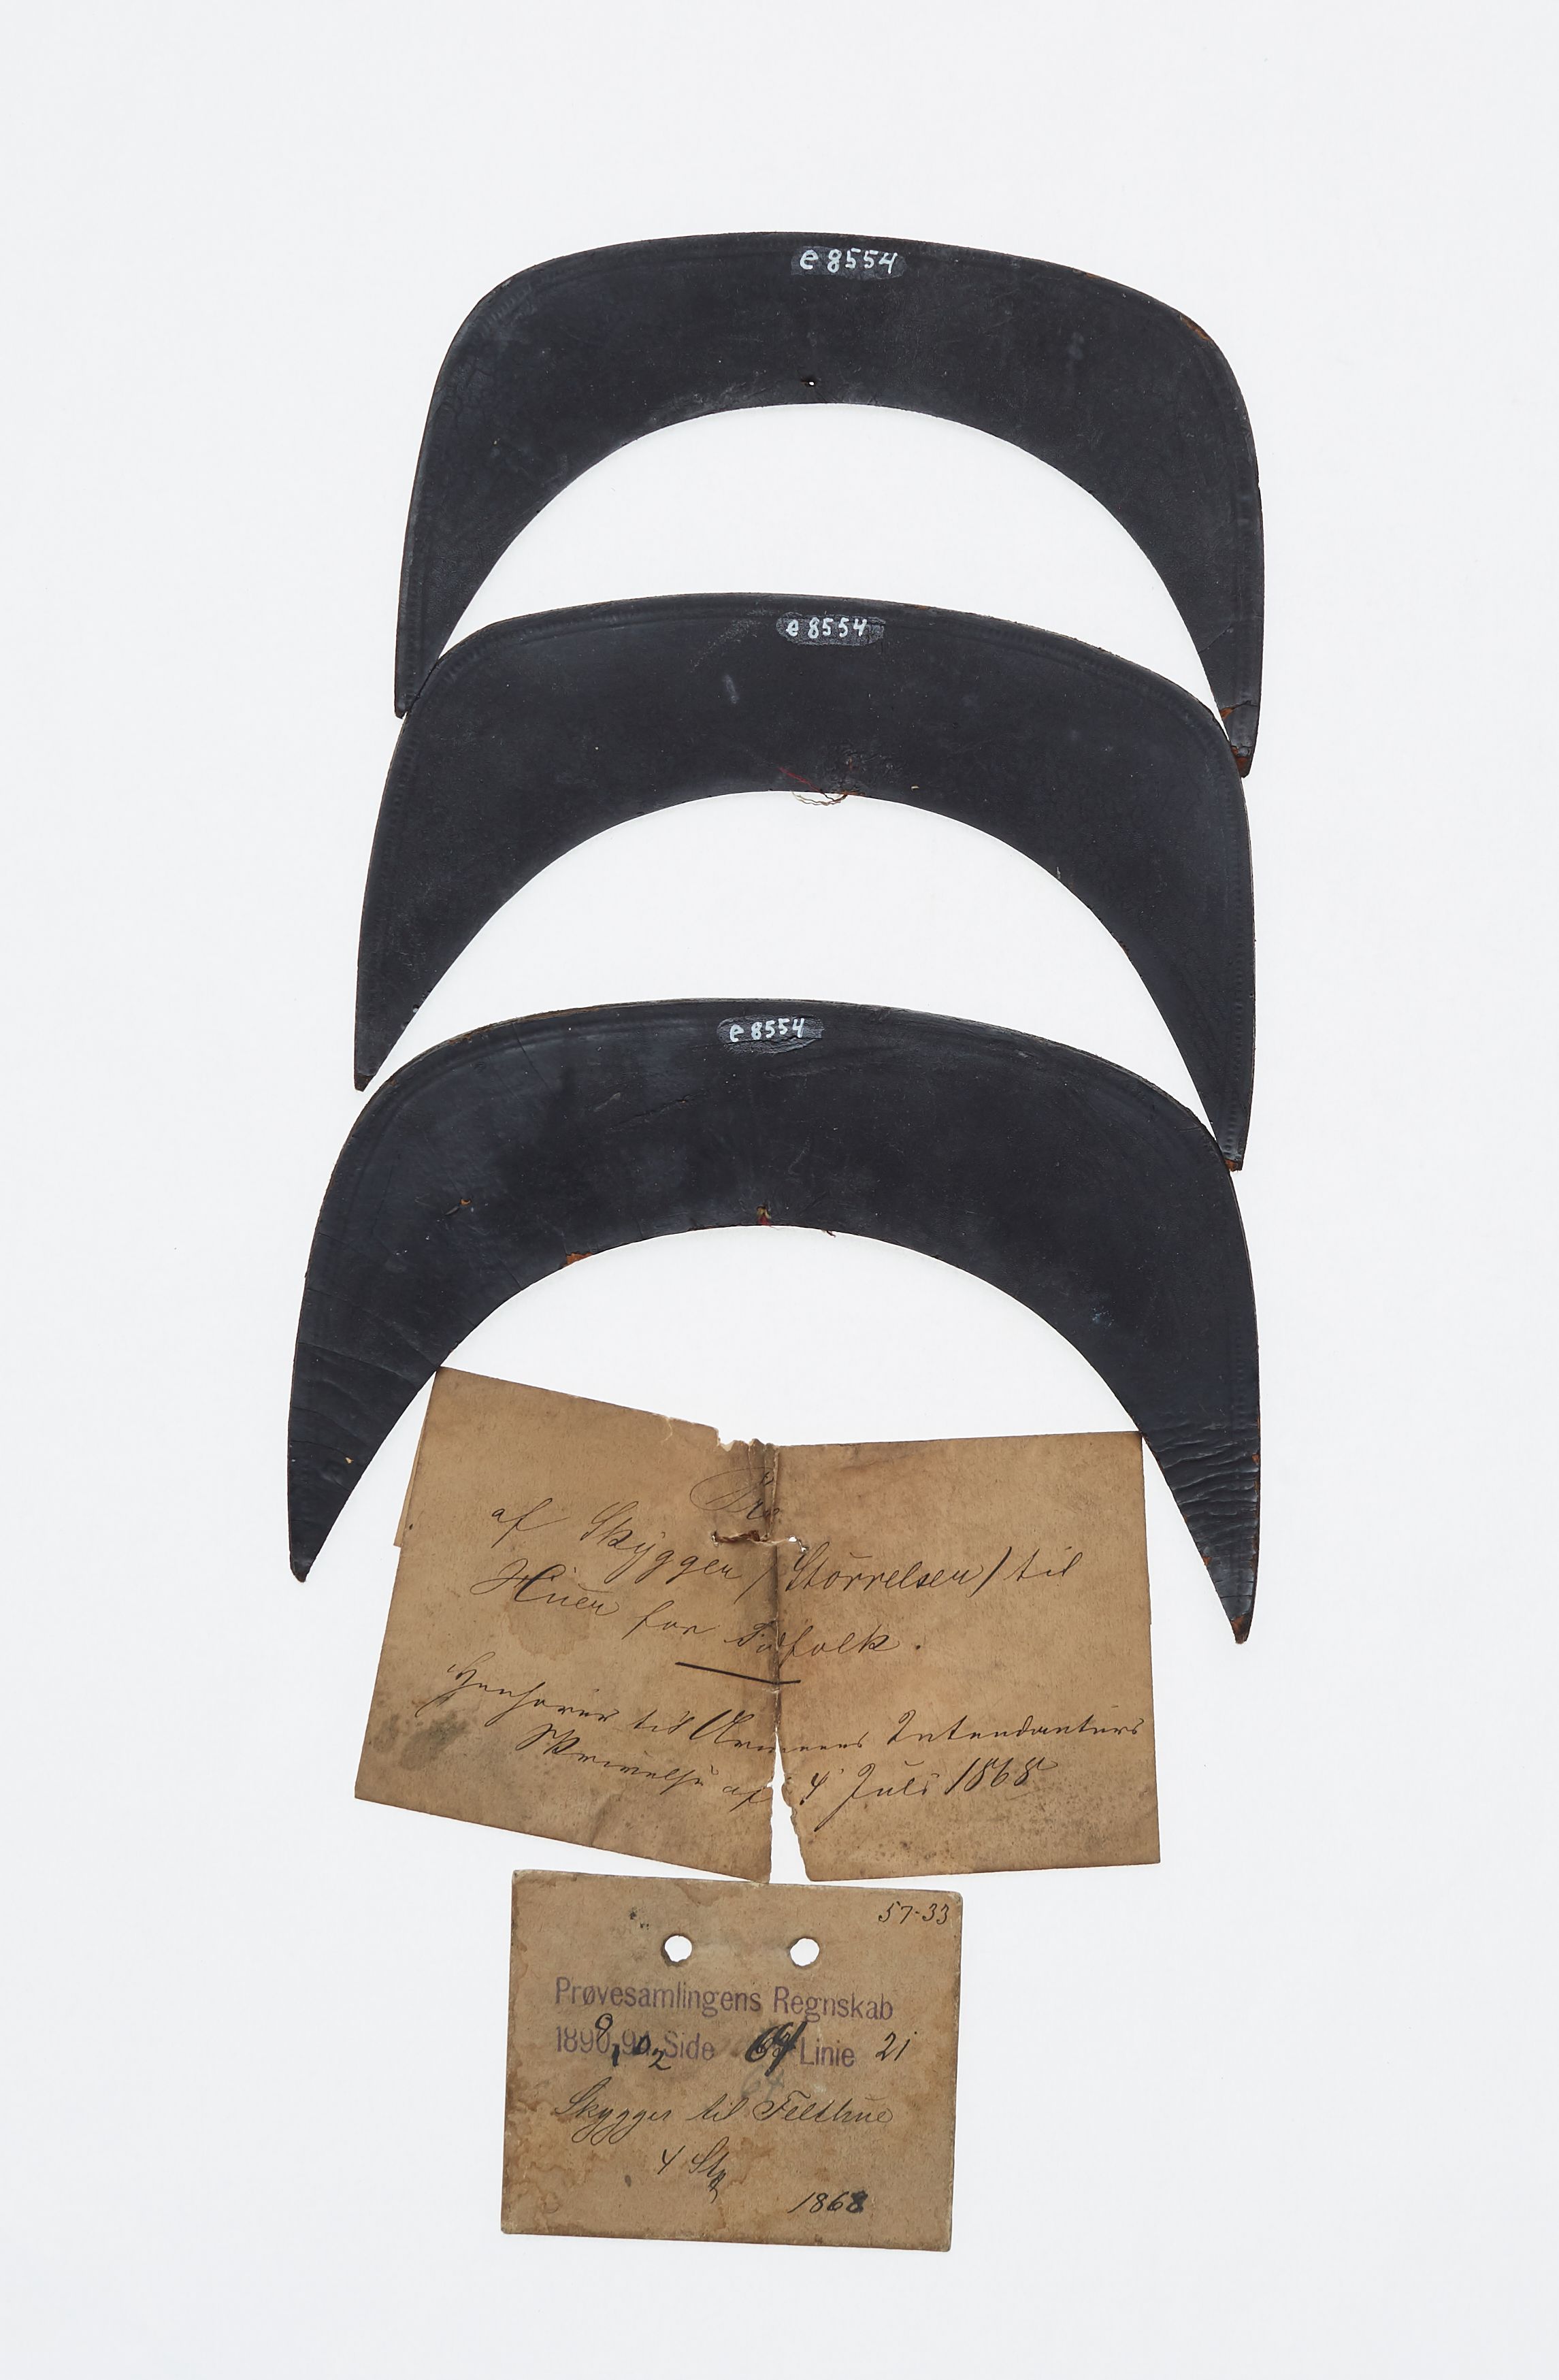 e 8554
e 8554
e 8554
af Skyggen (Störrelsen) til
Huen for Fodfolk.
Henhörer til Armeens Intendanturs
Skrivelse af 4' Juli 1868
57-33
Prøvesamlingens Regnskab
Side 64 Linie 21
Skygger til Felthue
4 Stk
1868